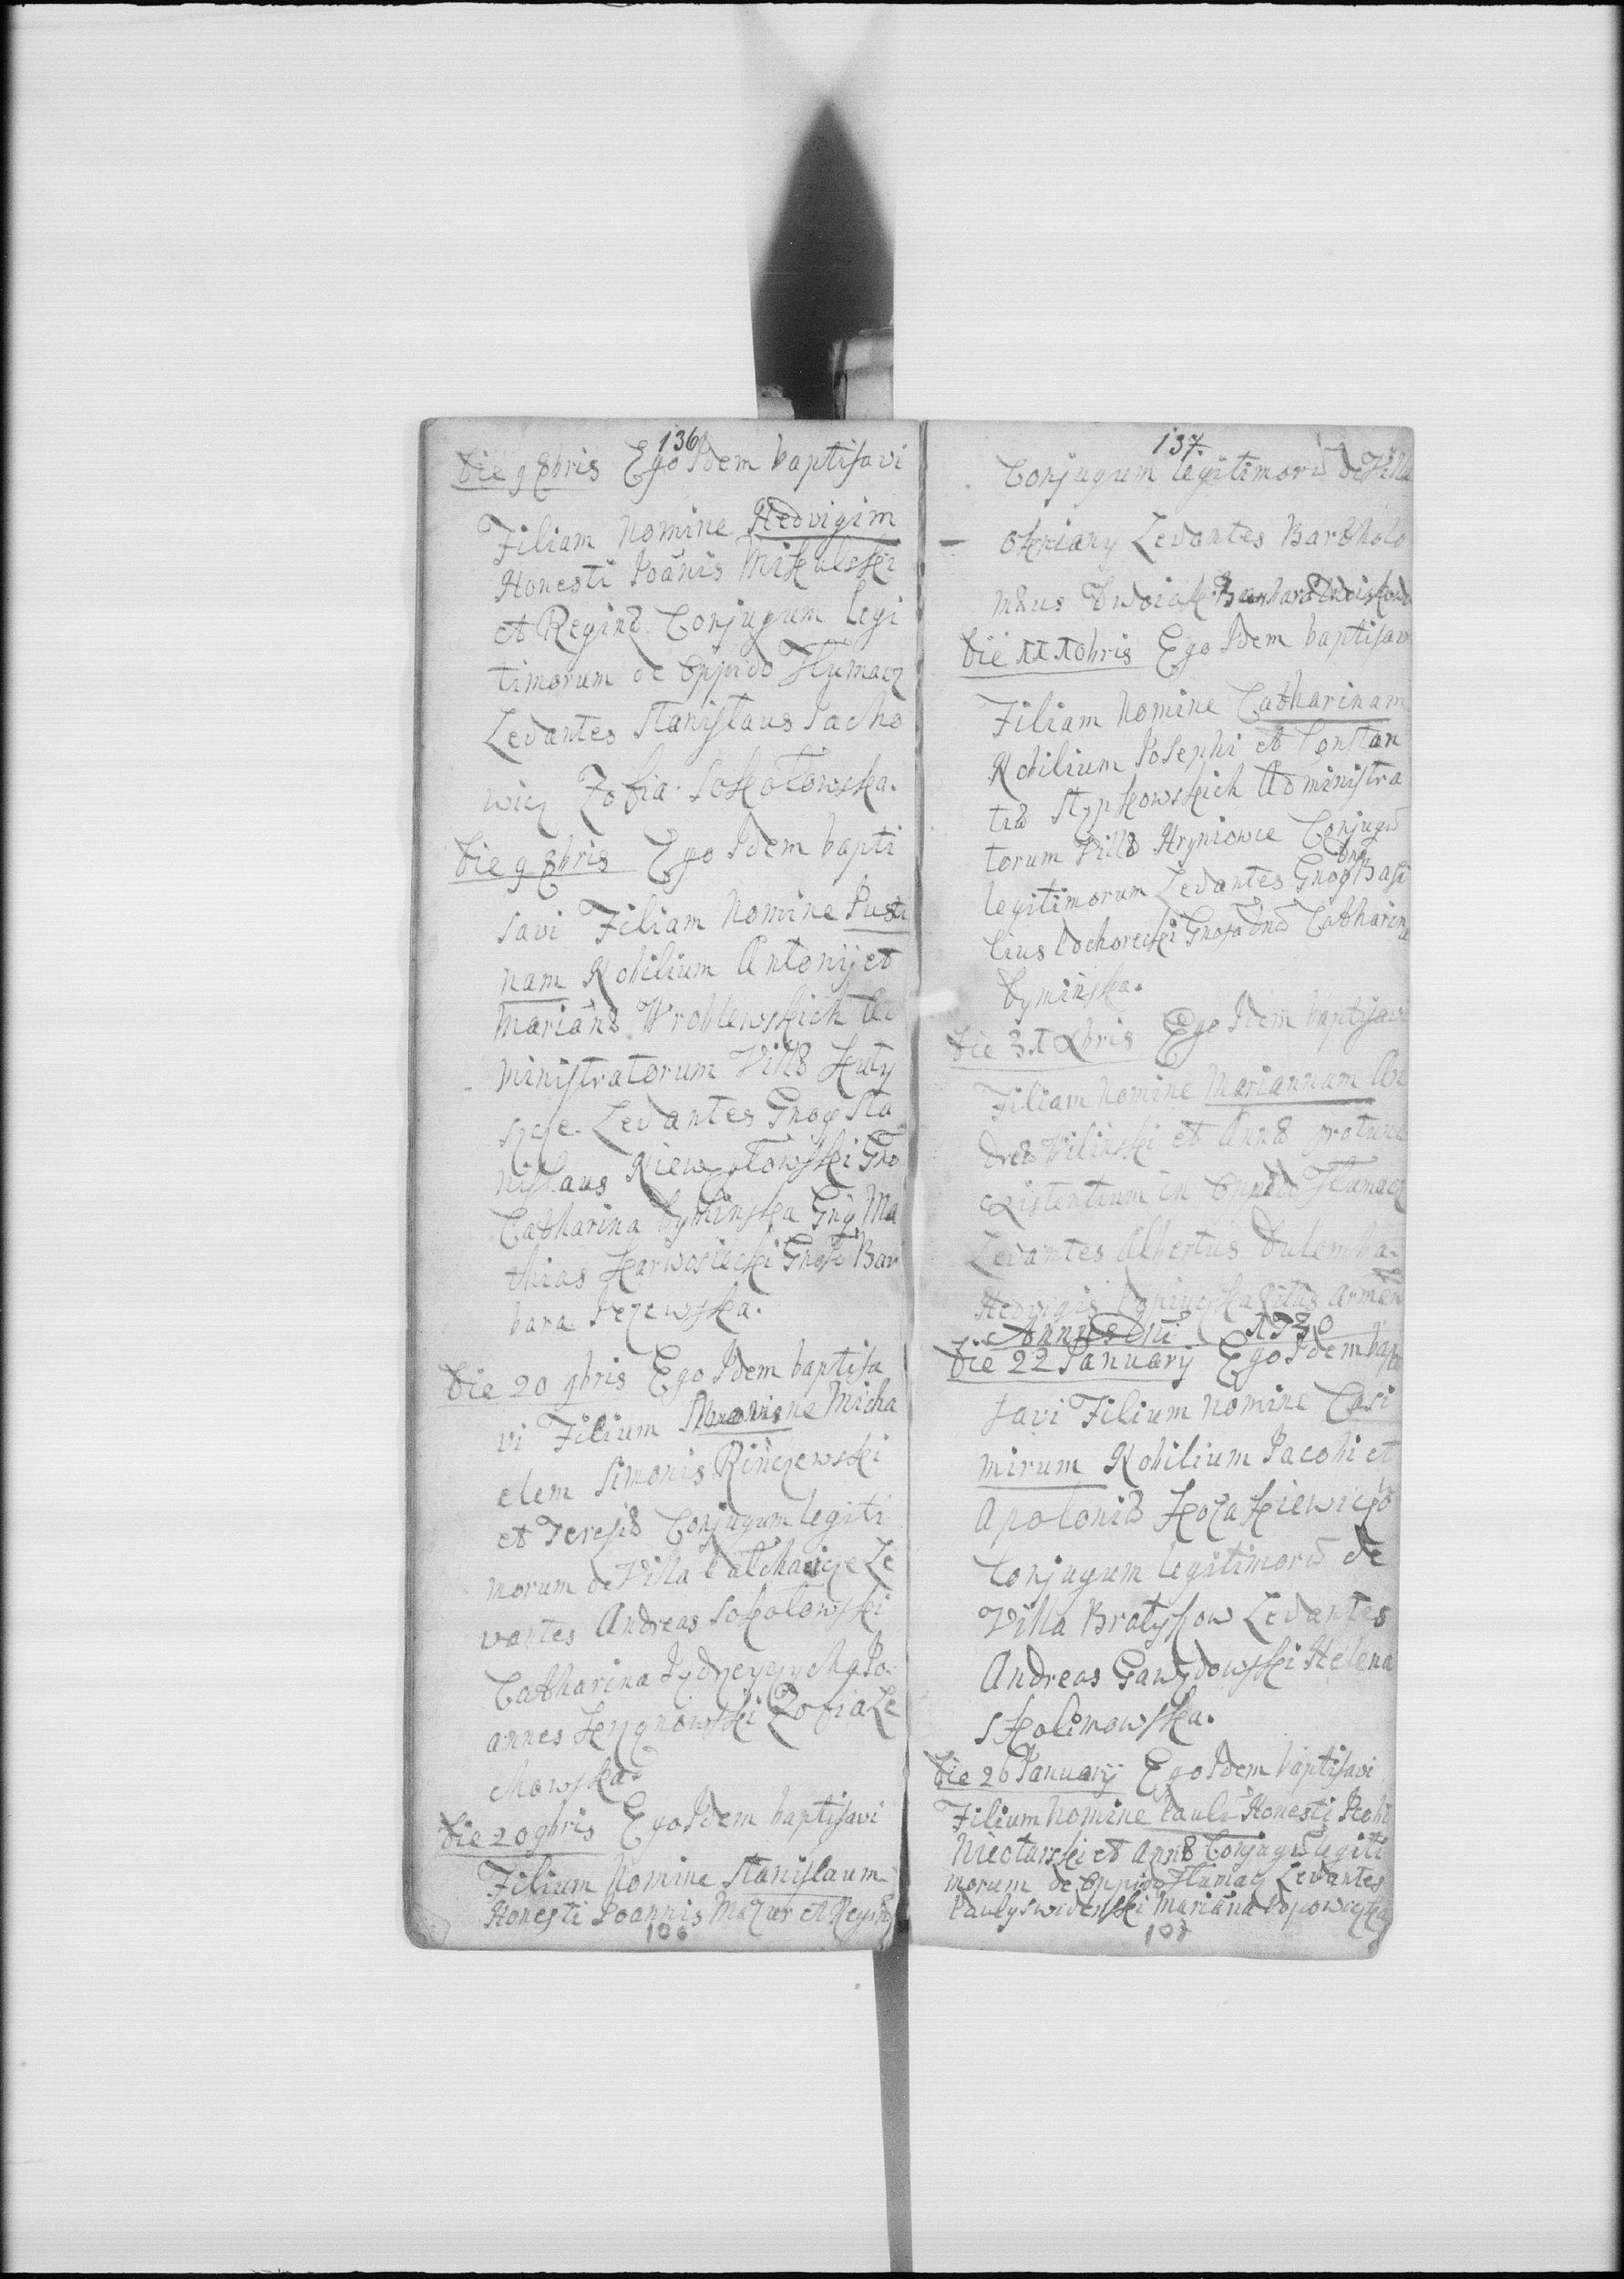 136
Die 9 8bris Ego Idem baptisavi
Filiam Nomine Hedvigim
Honesti Joanis Mikulski
et Reginæ Conjugum legi
timorum de Oppido Tłumacz
Levantes Stanislaus Jacho
wicz Zofia Sokołowska.
Die 9 8bris Ego Idem bapti
savi Filiam Nomine Justi
nam Nobilium Antonij et
Mariañæ Wroblewskich Ad
ministratorum Villæ Huty
Levantes Gnos Sta
nislaus
Catharina Dyminska Gnos Ma
thias Karwosiecki Gnosa Bar
bara Jezewska.
Die 20 9bris Ego Idem baptisa
vi Filium Nomine Micha
elem Simonis Rinczewski
et Teresiæ Conjugum legiti
morum de Villa Le
vantes Andreas Sokołowski
Catharina Jo
annes Zofia Le
chowska.
Die 20 9bris Ego Idem baptisavi
Filium Nomine Stanislaum
Honesti Joannis Mazur et Reginæ
106
137
Conjugum legitimorũ de Villa
Okniany Levantes Bartholo
mæus Dwoiak
Die 11 10bris Ego Idem baptisav
Filiam Nomine Catharinam
Nobilium Josephi et Constan
tiæ Stypkowskich Administra
torum Villæ Hryniowce Conjugũ
legitimorum Levantes Gnos Dnus Basi
lius Gnosa Dna Catharina
Dyminska.
Die 31 Xbris Ego Idem baptisavi
Filiam Nomine Mariannam An
dreæ Wilinski et Annæ pro tunc
existentium in Oppido Tłumacz
Levantes Albertus Dulemba.
Hedvigis ritus Armen
Annus Dni 1730
Die 22 January Ego Idem bapti
savi Filium Nomine Casi
mirum Nobilium Jacobi et
Apoloniæ
Conjugum legitimorũ de
Villa Bratyszow Levantes
Andreas Gawzdowski Helena
Skolimowska.
Die 26 January Ego Idem baptisavi
Filium Nomine Paulũ Honesti Jacobi
et Annæ Conjugũ legiti
morum de Oppido Tłumacz Levantes
Mariãna Popowiczka
107